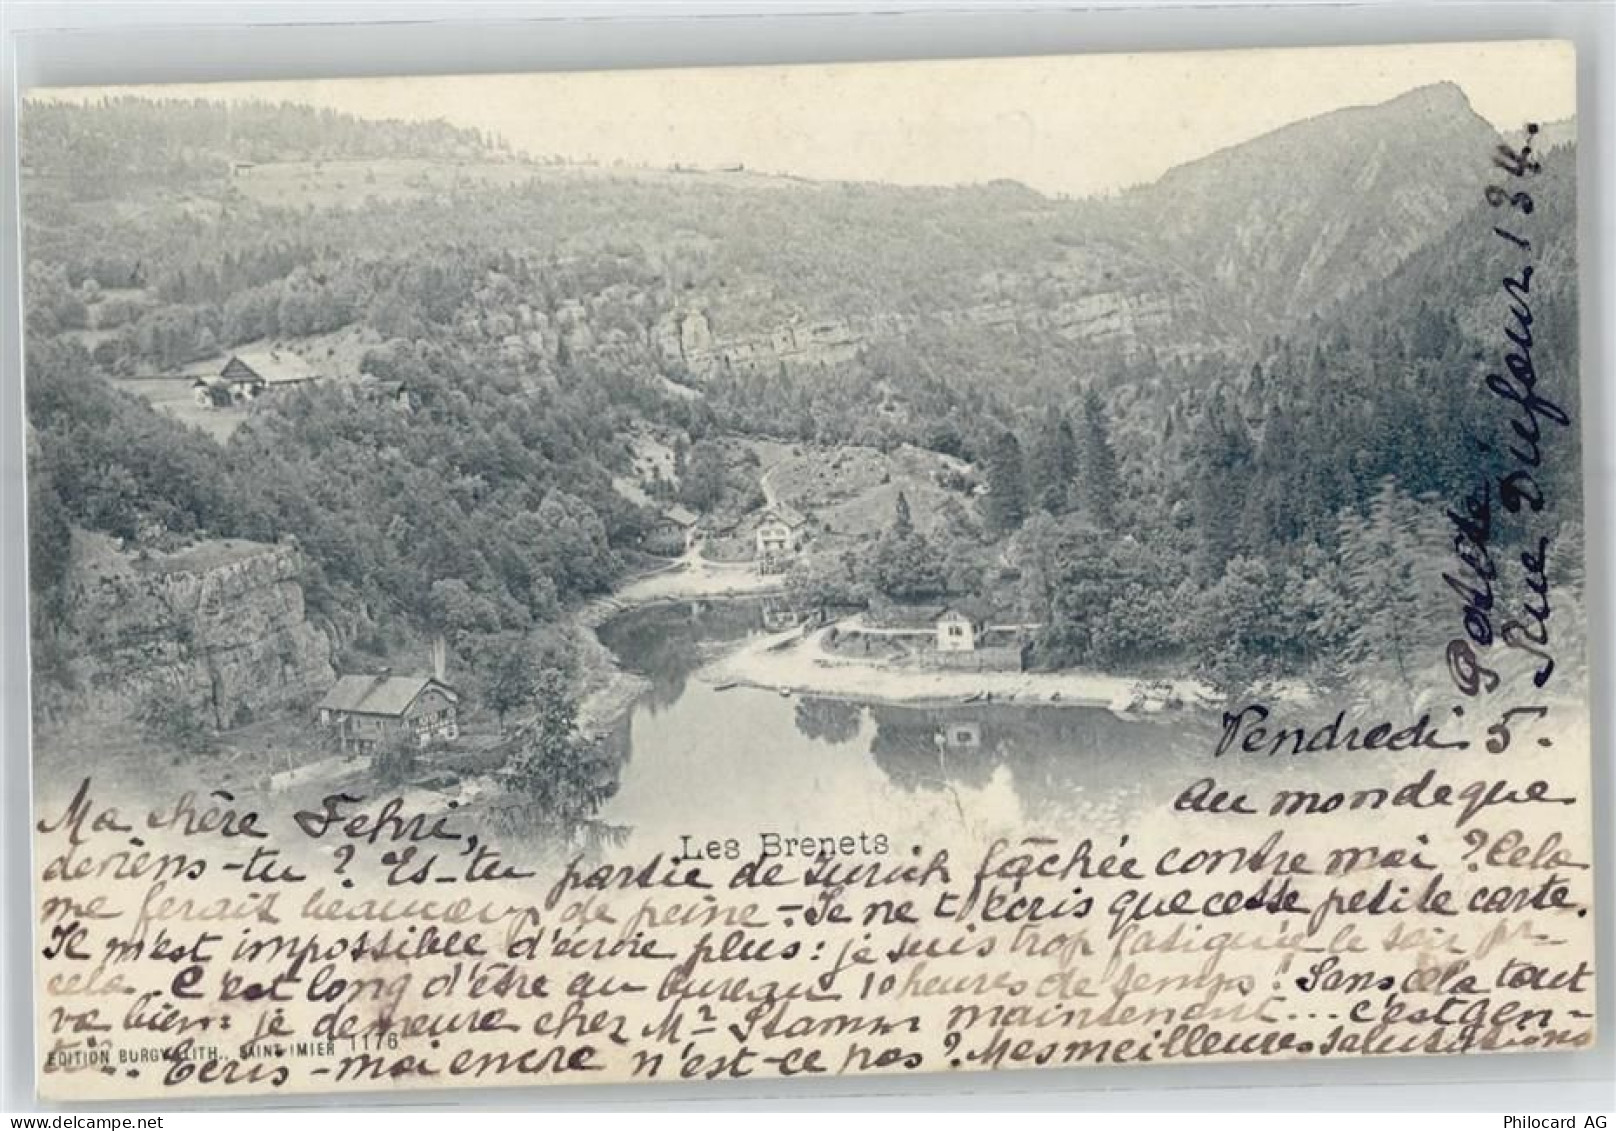 Adresse
Rue Dufour 134.
Vendredi 5.
Les Brenets
Ma chère Fehri, au mondeque
deviens-tu? Es-tu partie de Zurich fâchée contre moi? Cela
me ferait beaucoup de peine - Je ne t'écris que cette petite carte.
Il m'est impossible d'écrire plus: je suis trop fatiguée le soir pr-
cela. C'est long d'être au bureau 10 heures de temps! Sans cela tout
va bien: je demeure chez Mr Stamm maintenant... c'est gen-
til? Écris-moi encore n'est-ce pas? Mes meilleures salutations
EDITION BURGY LITH., SAINT-IMIER 1176
Philocard AG